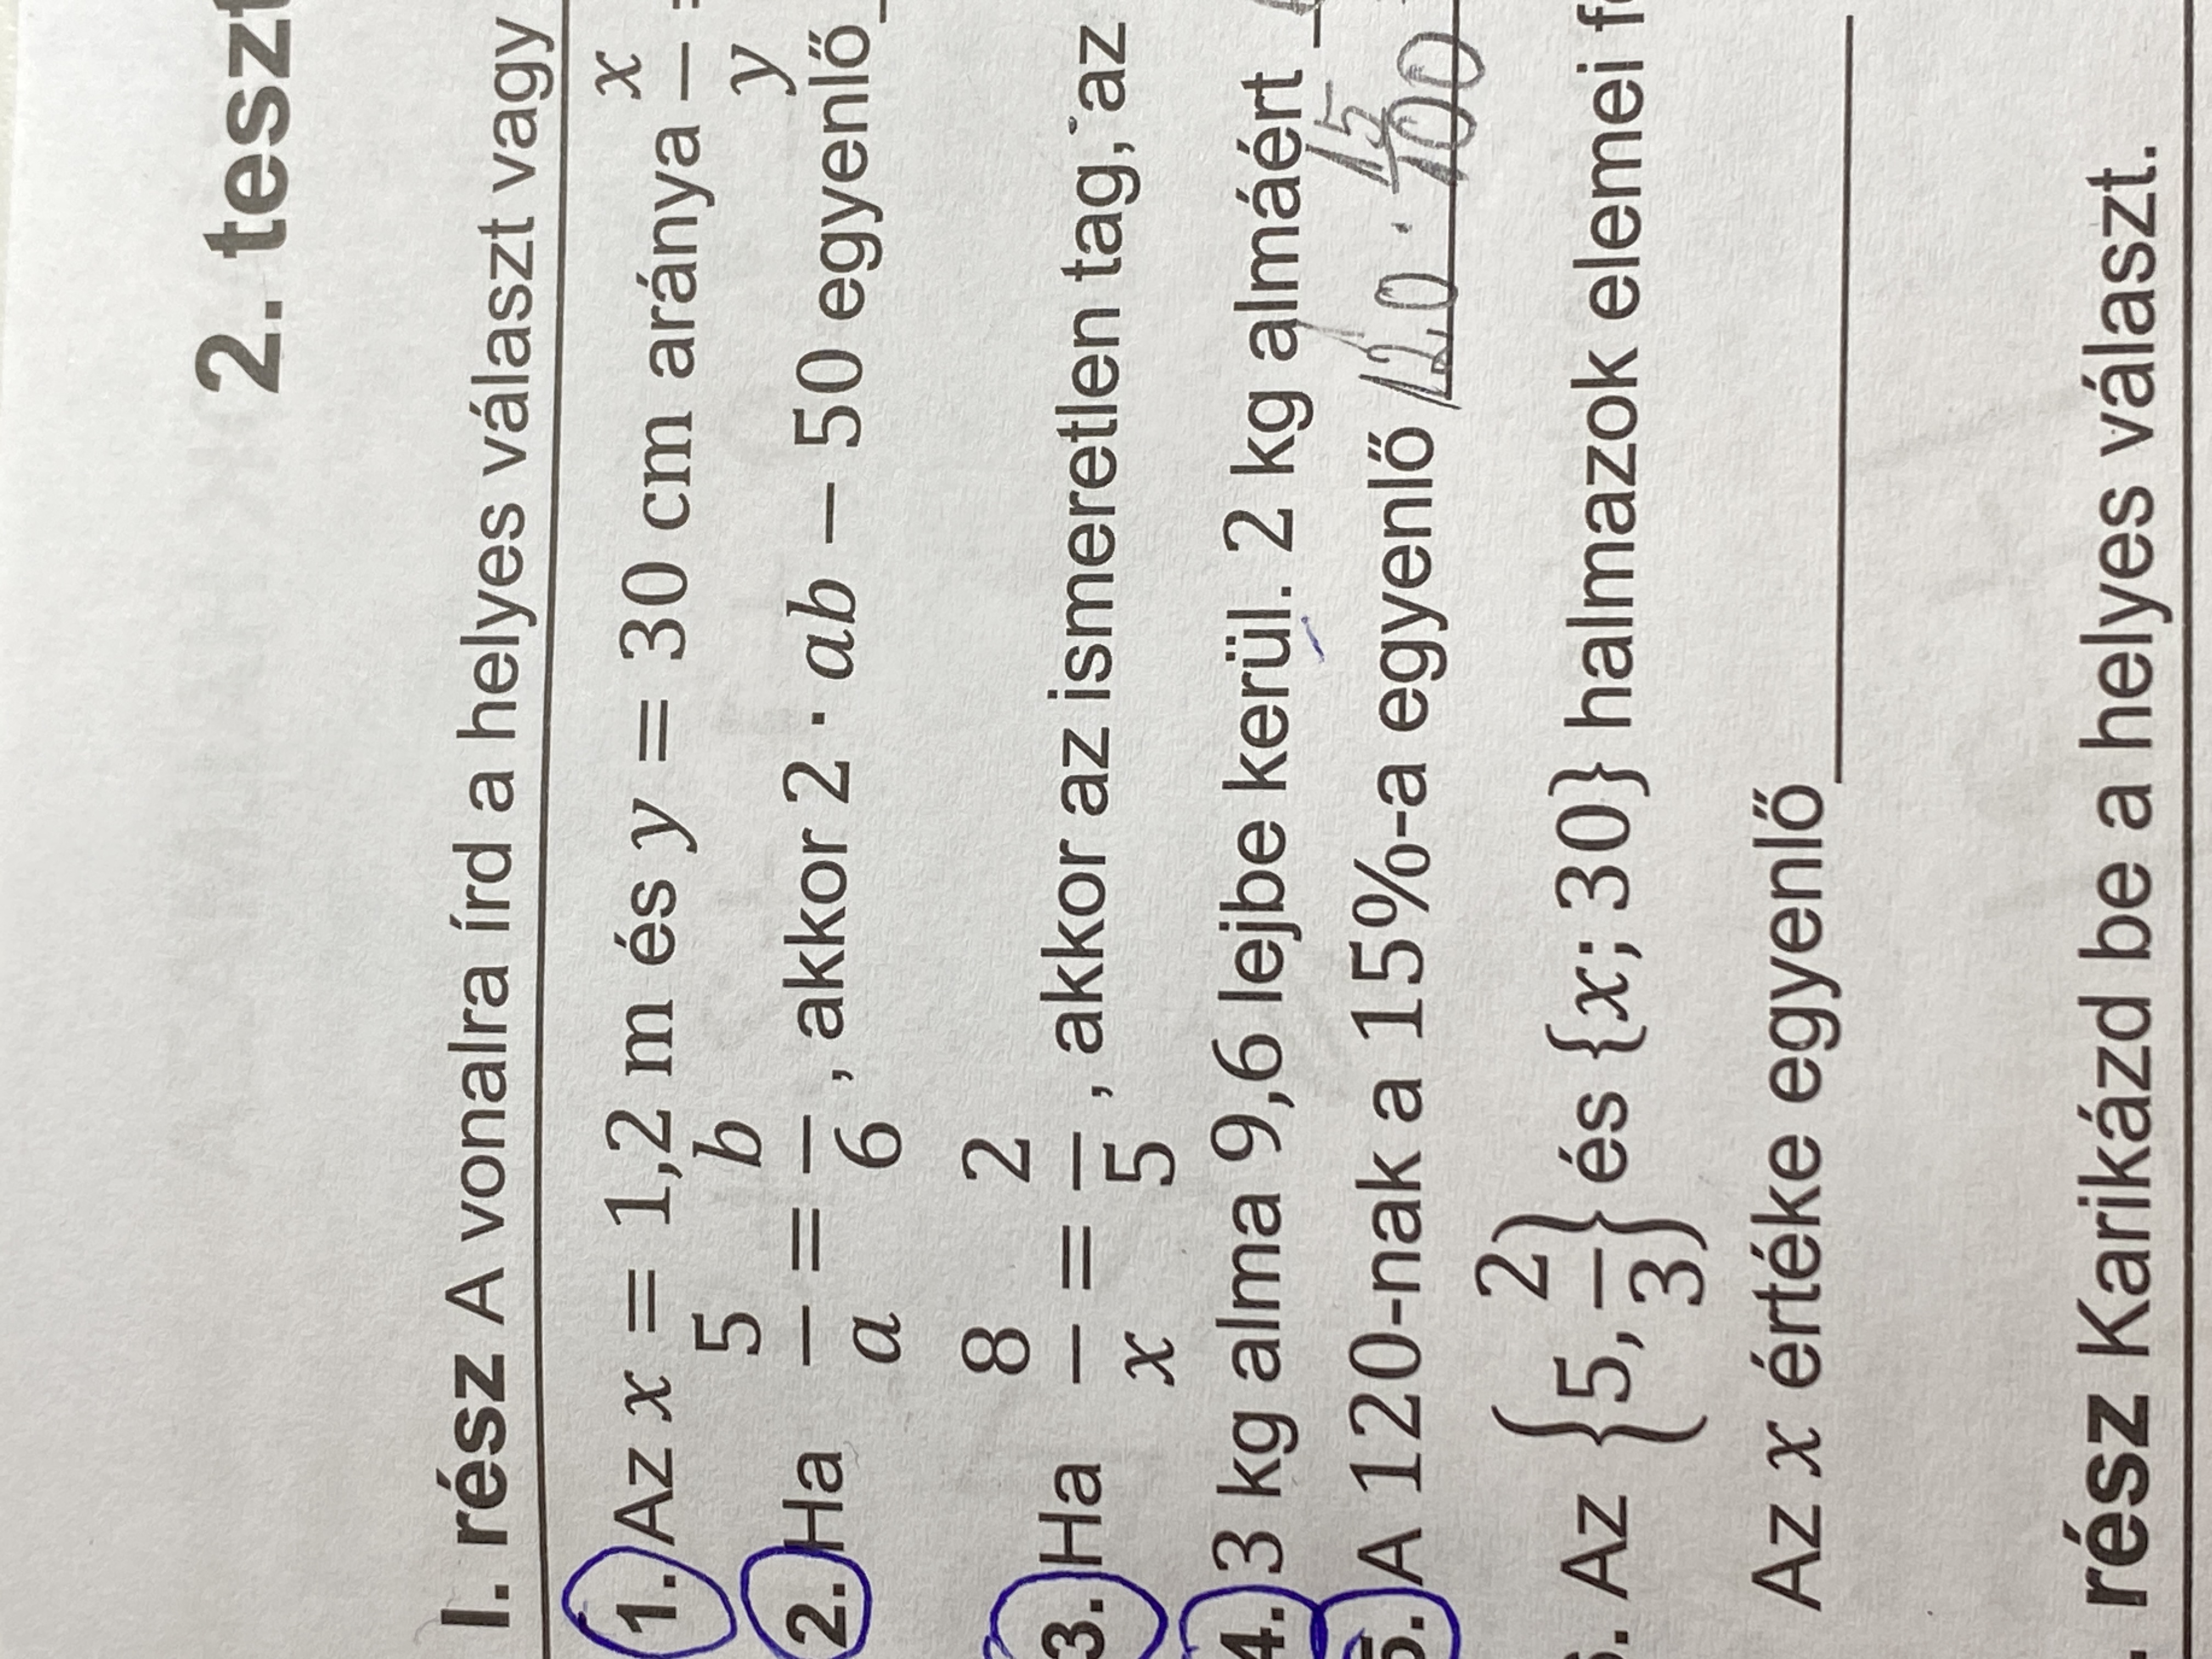 2. teszt
I. rész A vonalra írd a helyes választ vagy
1. Az x = 1,2 m és y = 30 cm aránya x/y =
2. Ha 5/a = b/6, akkor 2 · ab − 50 egyenlő
3. Ha 8/x = 2/5, akkor az ismeretlen tag, az
4. 3 kg alma 9,6 lejbe kerül. 2 kg almáért
5. A 120-nak a 15%-a egyenlő 120 · 15/100
. Az {5, 2/3} és {x; 30} halmazok elemei
Az x értéke egyenlő
. rész Karikázd be a helyes választ.